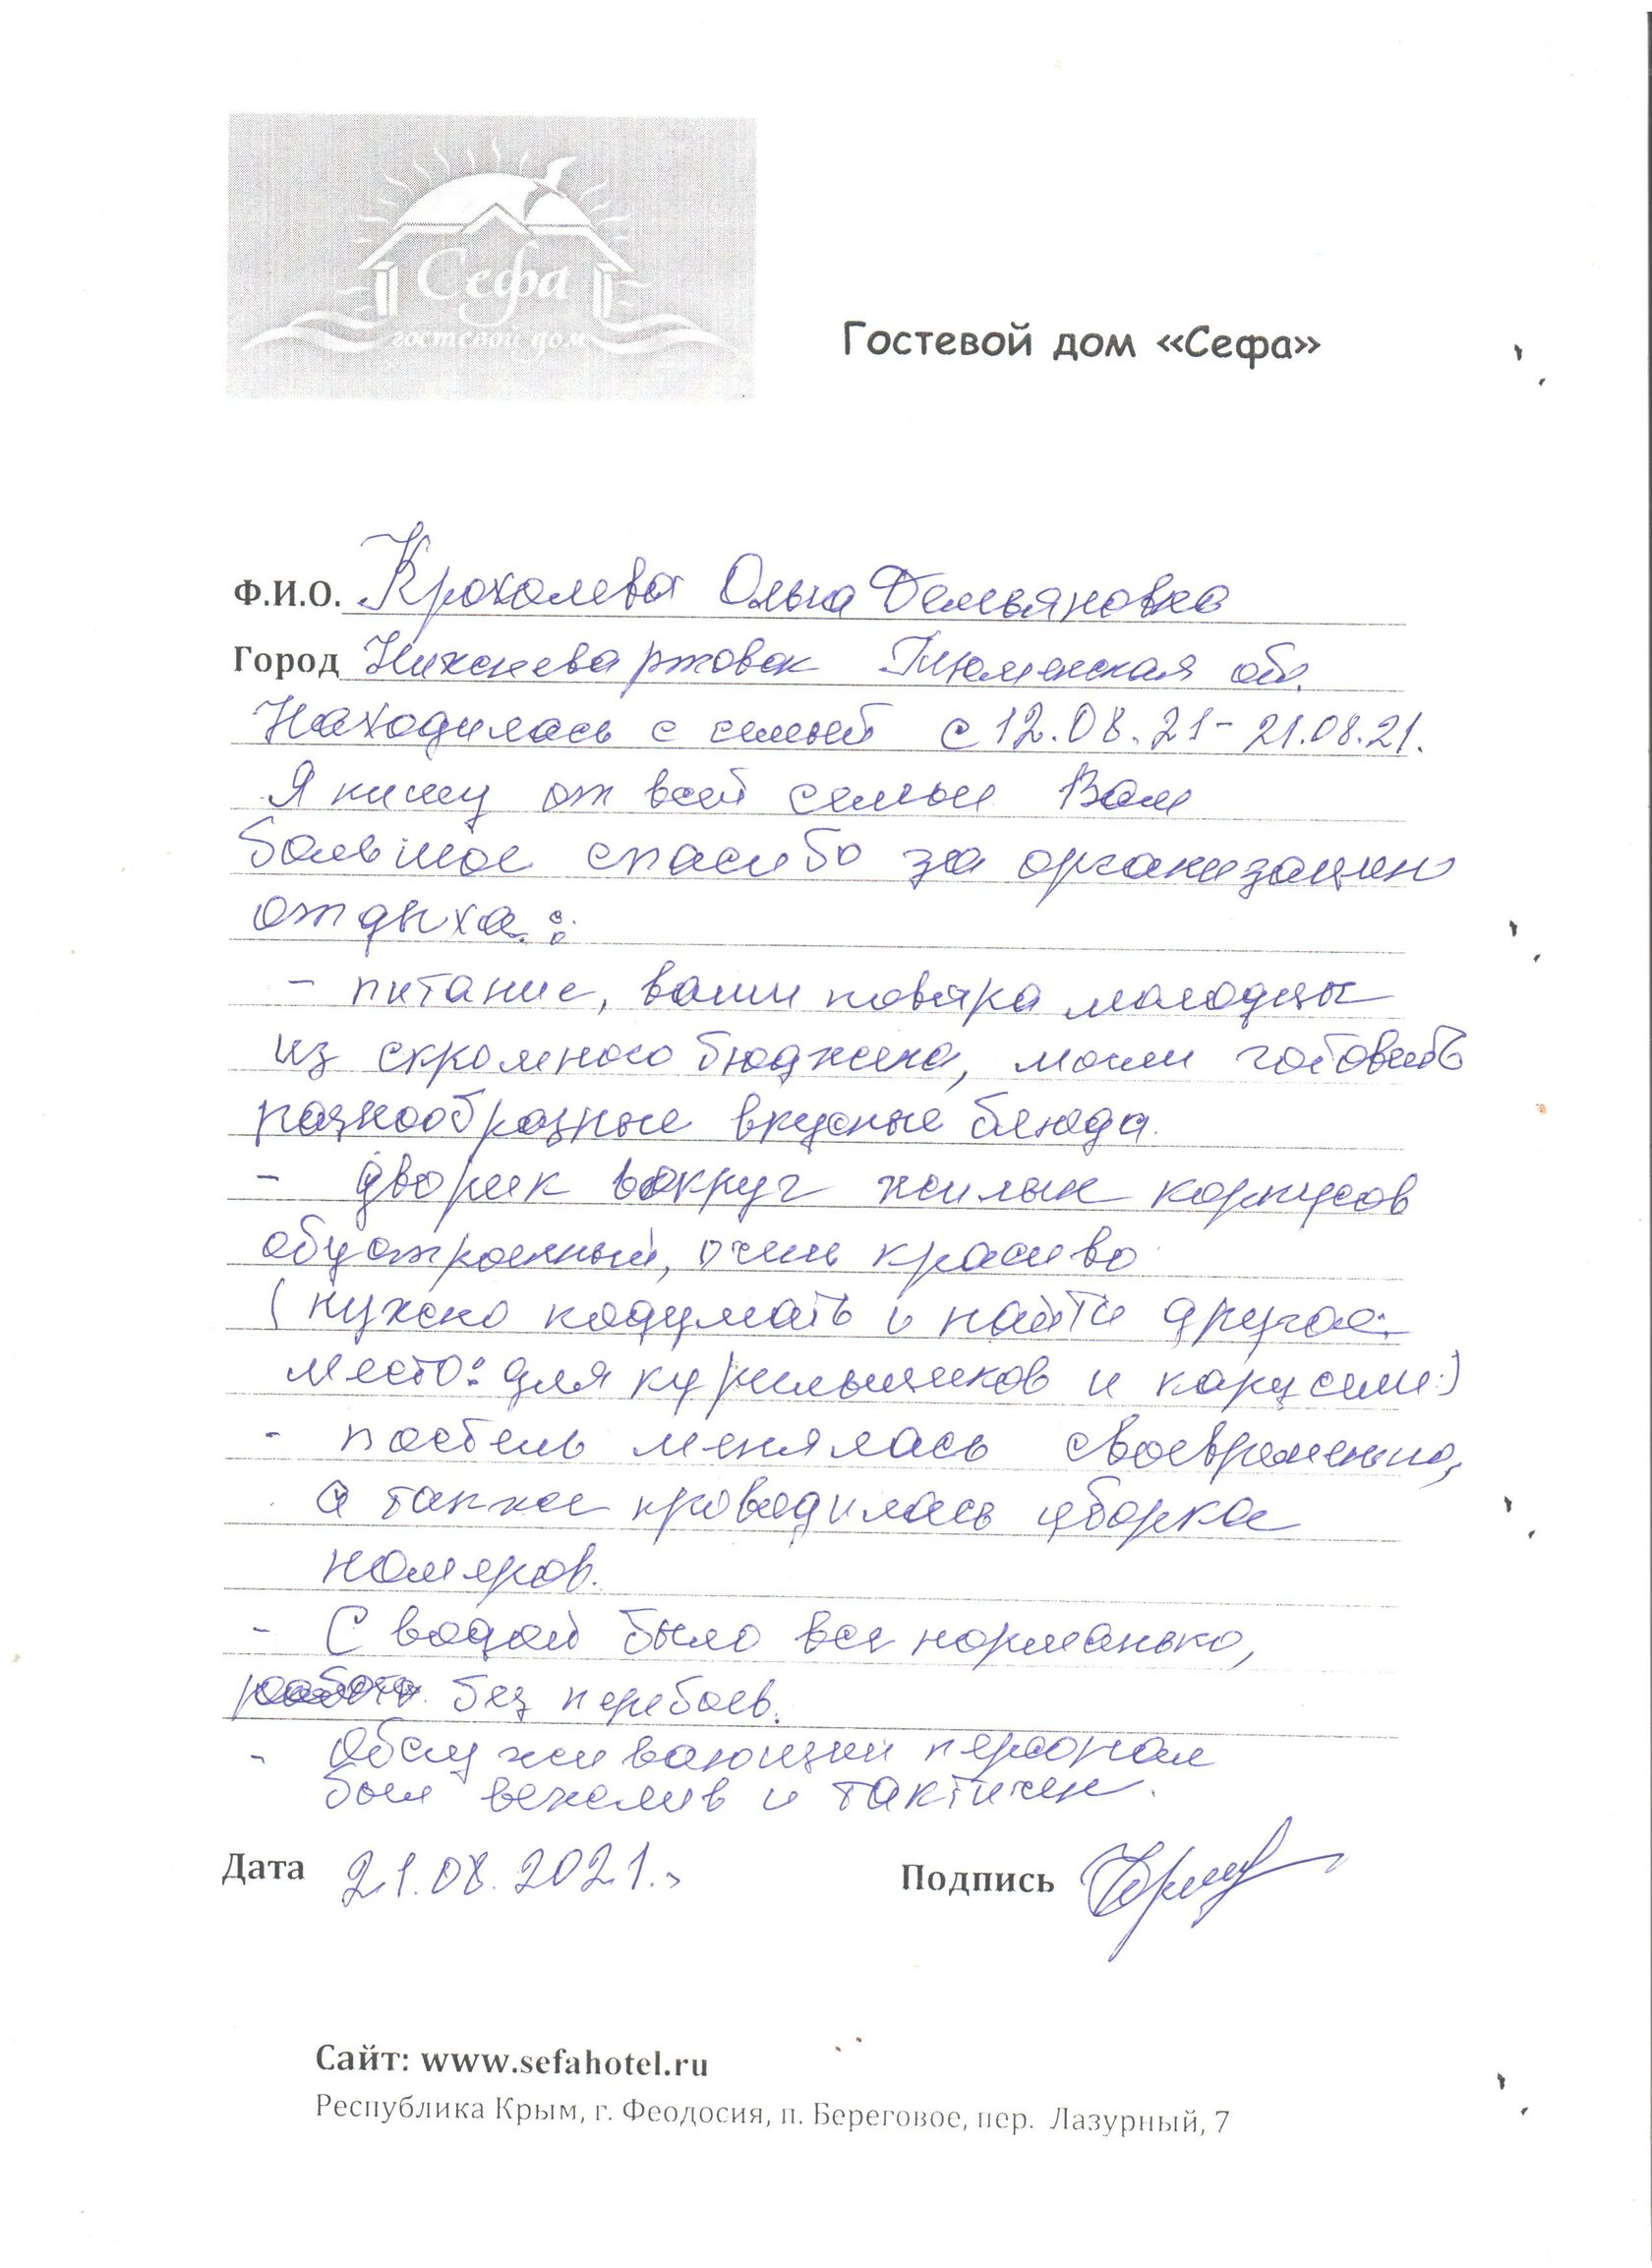 Сефа
гостевой дом
Гостевой дом «Сефа»
Ф.И.О. Крохалева Ольга Демьяновна
Город Нижневартовск Тюменская обл.
Находилась с семьей с 12.08.21- 21.08.21.
Я пишу от всей семьи Вам
большое спасибо за организацию
отдыха:
- питание, ваши повара молодцы
из скромного бюджета, могли готовить
разнообразные вкусные блюда.
- дворик вокруг жилых корпусов
обустроенный, очень красиво
(нужно подумать и найти другое
место: для курильщиков и карусели)
- постель менялась своевременно,
а также проводилась уборка
номеров.
- С водой было все нормально,
без перебоев.
- Обслуживающий персонал
был вежлив и тактичен.
Дата 21.08.2021. Подпись
Сайт: www.sefahotel.ru
Республика Крым, г. Феодосия, п. Береговое, пер. Лазурный, 7